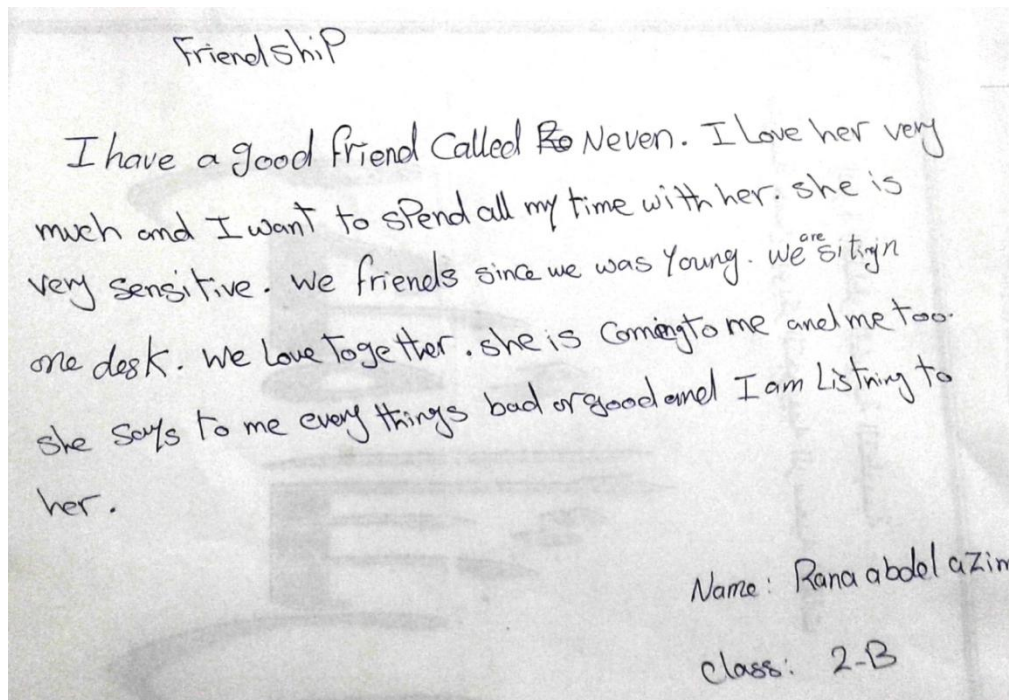 Friendship
I have a good friend Called Neven. I Love her very
much and I want to spend all my time with her. she is
very sensitive. we friends since we was Young. we are siting in
one desk. we Love together. she is Coming to me and me too.
she says to me every things bad or good and I am Listning to
her.
Name: Rana abdel azim
class: 2-B